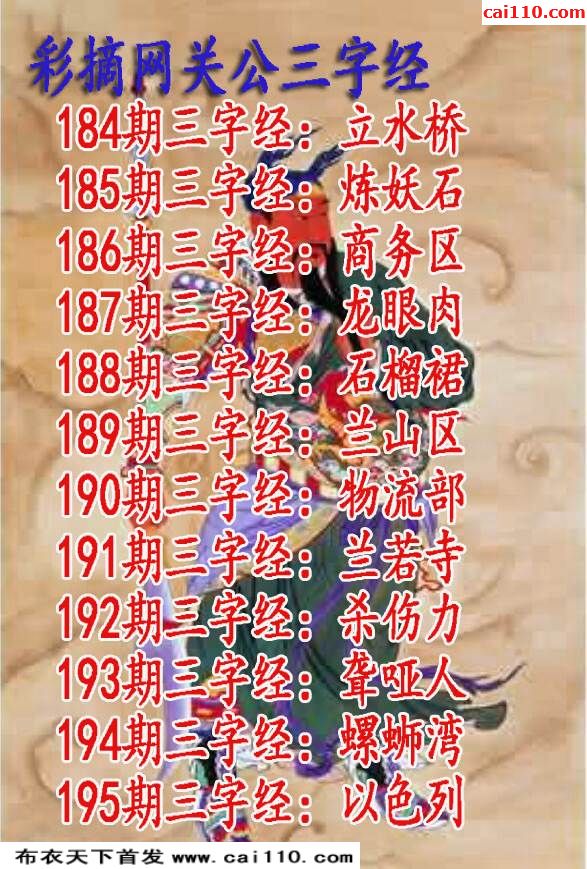 cai110.com
彩摘网关公三字经
184期三字经：立水桥
185期三字经：炼妖石
186期三字经：商务区
187期三字经：龙眼肉
188期三字经：石榴裙
189期三字经：兰山区
190期三字经：物流部
191期三字经：兰若寺
192期三字经：杀伤力
193期三字经：聋哑人
194期三字经：螺蛳湾
195期三字经：以色列
布衣天下首发 www.cai110.com